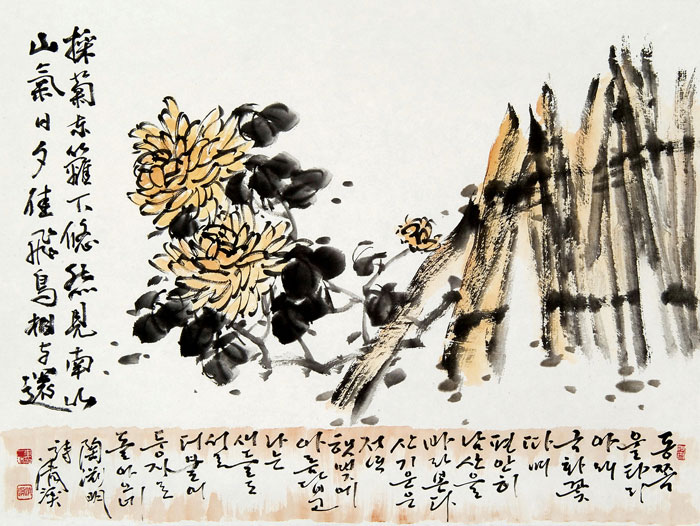 採菊东籬下悠然見南山
山氣日夕佳飛鳥相与還
동쪽
울타리
아래
국화꽃
따며
편안히
남산을
바라본다
산기운은
저녁
햇빛에
아름답고
나는
새들도
서로
더불어
둥지로
돌아오네
陶淵明
詩